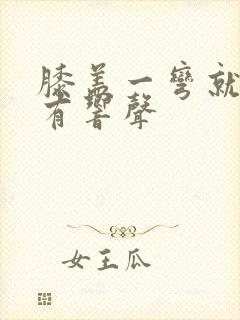 膝盖一彎就
有響聲
女王瓜